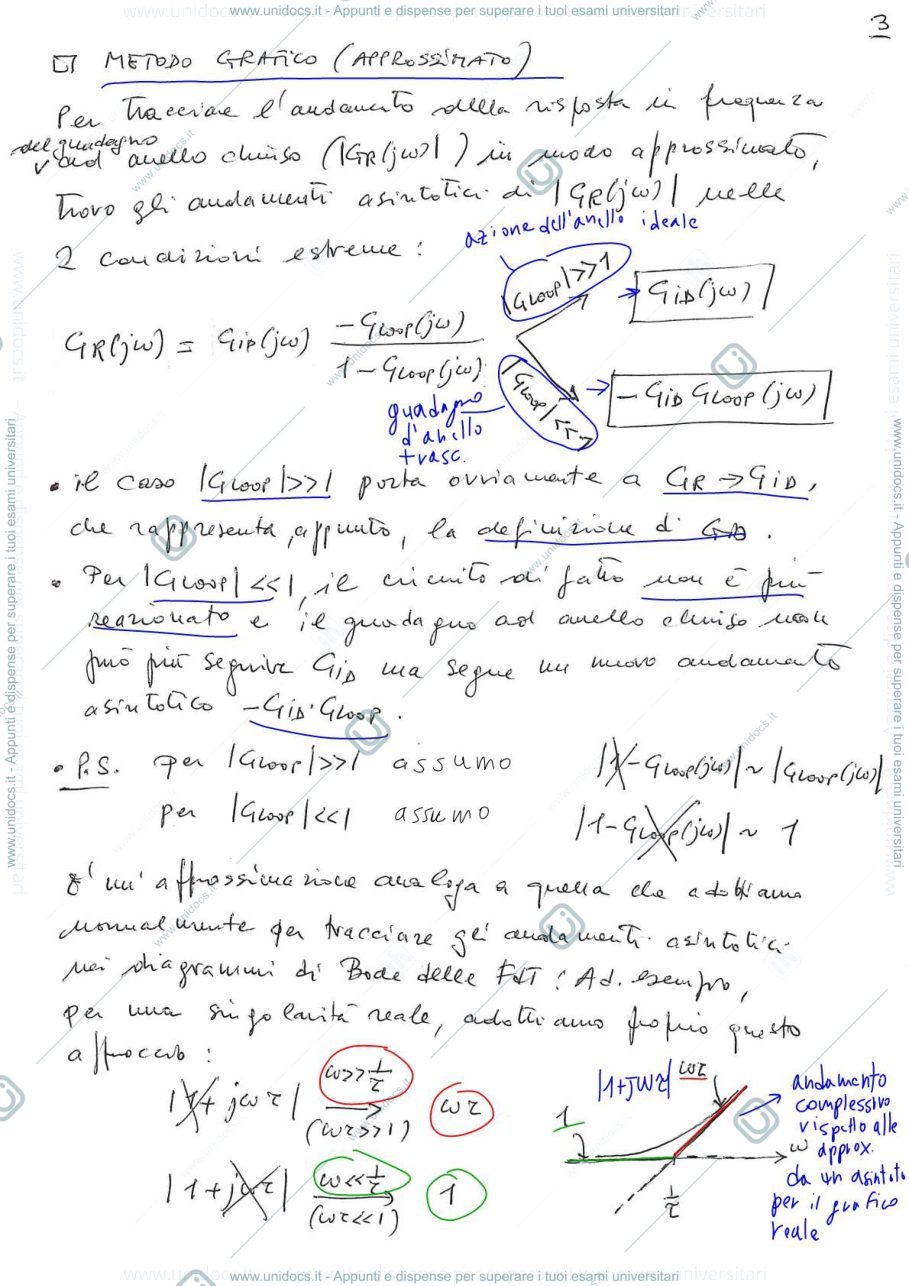 www.unidocs.it - Appunti e dispense per superare i tuoi esami universitari
3
METODO GRAFICO (APPROSSIMATO)
Per tracciare l'andamento della risposta in frequenza
del guadagno
ad anello chiuso (|GR(jω)|) in modo approssimato,
trovo gli andamenti asintotici di |GR(jω)| nelle
2 condizioni estreme:
azione dell'anello ideale
|Gloop|>>1
GiD(jω)
GR(jω) = GiD(jω) -Gloop(jω) / 1-Gloop(jω)
|Gloop|<<1
-GiD Gloop(jω)
guadagno
d'anello
trasc.
• il caso |Gloop|>>1 porta ovviamente a GR → GiD,
che rappresenta, appunto, la definizione di GiD.
• Per |Gloop|<<1, il circuito di fatto non è più
reazionato e il guadagno ad anello chiuso non
può più seguire GiD ma segue un nuovo andamento
asintotico -GiD·Gloop.
• P.S. per |Gloop|>>1 assumo |1-Gloop(jω)| ~ |Gloop(jω)|
per |Gloop|<<1 assumo |1-Gloop(jω)| ~ 1
E' un'approssimazione analoga a quella che adottiamo
normalmente per tracciare gli andamenti asintotici
nei diagrammi di Bode delle FdT: Ad. esempio,
per una singolarità reale, adottiamo proprio questo
approccio:
|1+jωτ| ω>>1/τ (ωτ>>1) ωτ
|1+jωτ| ω<<1/τ (ωτ<<1) 1
|1+jωτ| ωτ
1
ω
1/τ
andamento
complessivo
rispetto alle
approx.
da un asintoto
per il grafico
reale
www.unidocs.it - Appunti e dispense per superare i tuoi esami universitari
www.unidocs.it - Appunti e dispense per superare i tuoi esami universitari
www.unidocs.it - Appunti e dispense per superare i tuoi esami universitari